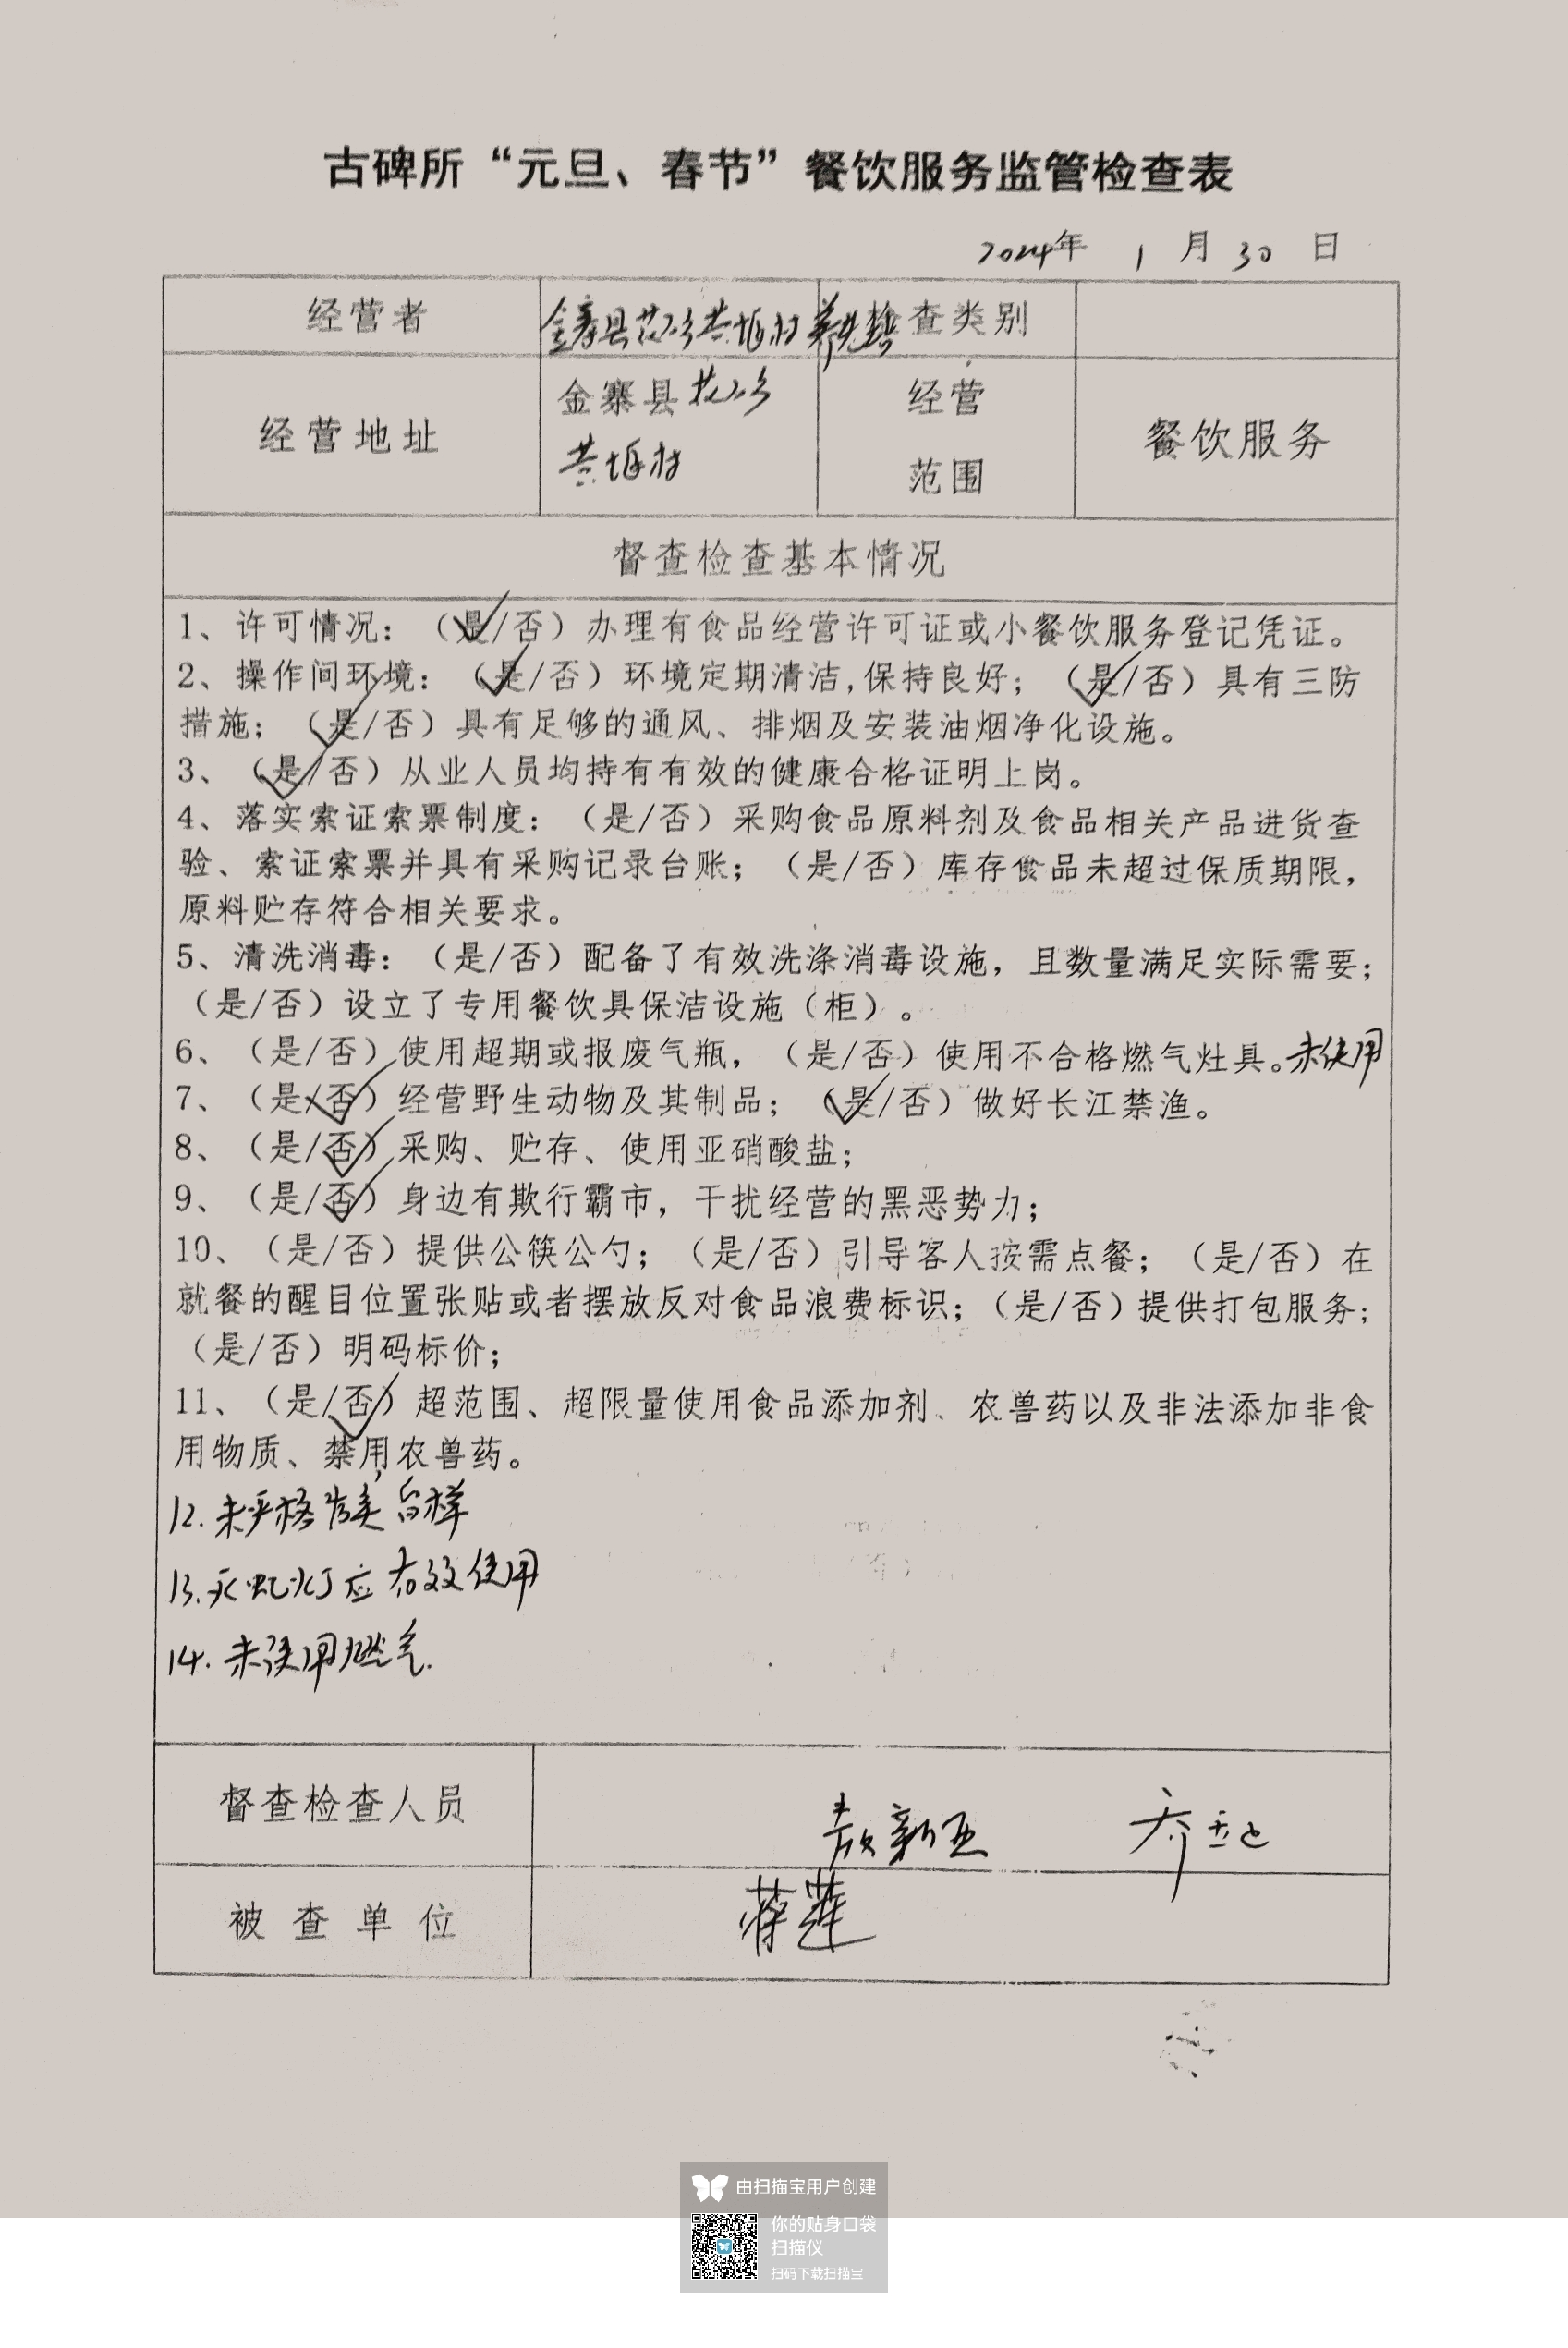 古碑所“元旦、春节”餐饮服务监管检查表
2024年 1 月 30 日
经营者
金寨县花石乡 检查类别
经营地址
金寨县花石乡
经营
范围
餐饮服务
督查检查基本情况
1、许可情况：（是/否）办理有食品经营许可证或小餐饮服务登记凭证。
2、操作间环境：（是/否）环境定期清洁,保持良好；（是/否）具有三防
措施；（是/否）具有足够的通风、排烟及安装油烟净化设施。
3、（是/否）从业人员均持有有效的健康合格证明上岗。
4、落实索证索票制度：（是/否）采购食品原料剂及食品相关产品进货查
验、索证索票并具有采购记录台账；（是/否）库存食品未超过保质期限，
原料贮存符合相关要求。
5、清洗消毒：（是/否）配备了有效洗涤消毒设施，且数量满足实际需要；
（是/否）设立了专用餐饮具保洁设施（柜）。
6、（是/否）使用超期或报废气瓶，（是/否）使用不合格燃气灶具。未使用
7、（是/否）经营野生动物及其制品；（是/否）做好长江禁渔。
8、（是/否）采购、贮存、使用亚硝酸盐；
9、（是/否）身边有欺行霸市，干扰经营的黑恶势力；
10、（是/否）提供公筷公勺；（是/否）引导客人按需点餐；（是/否）在
就餐的醒目位置张贴或者摆放反对食品浪费标识；（是/否）提供打包服务；
（是/否）明码标价；
11、（是/否）超范围、超限量使用食品添加剂、农兽药以及非法添加非食
用物质、禁用农兽药。
12.未严格落实留样
13.灭虫灯应有效使用
14.未使用燃气.
督查检查人员
敖新亚
被查单位
蒋莲
由扫描宝用户创建
你的贴身口袋
扫描仪
扫码下载扫描宝